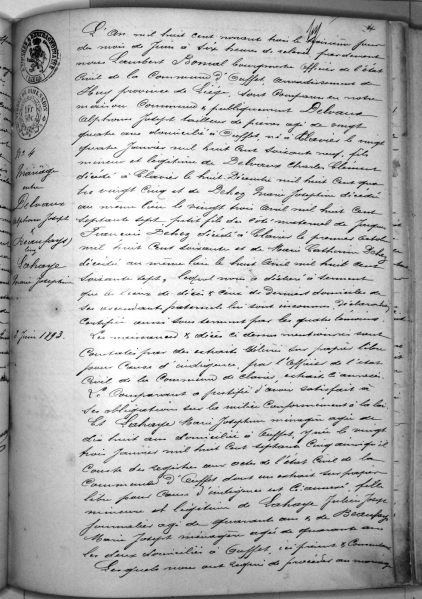 4
L'An mil huit cent nonant trois le troisième jour
du mois de Juin à six heure de relevée pardevant
nous Lambert Bonsal bourgmestre officier de l'état
Civil de la Commune d'Ouffet arrondissement de
Huy province de Liége, sont Comparus en notre
maison Commune & publiquement Delvaux
Alphonse Joseph tailleur de pierres agé de vingt
quatre ans domicilié à Ouffet, né à Clavier le vingt
quatre Janvier mil huit Cent soixante neuf, fils
mineur et légitime de Delvaux Charles Clément
décédé à Clavier le huit Décembre mil huit Cent qua
tre vingt Cinq et de Dehez Marie Josephine décédée
au même lieu le vingt trois avril mil huit Cent
septante sept, petit fils du Côté maternel de Jacques
François Dehez décédé à Clavier le premier octobre
mil huit Cent soixante et de Marie Catherine
décédée au même lieu le huit avril mil huit cent
soixante sept, lequel nous a déclaré à serment
que le lieu de décès & celui du dernier domicile de
ses ascendants paternels lui sont inconnus. Déclaration
Certifiée aussi sous serment par les quatre témoins.
Les naissances & décès ci dessus mentionnés sont
Constatés par des extraits délivrés sur papier libre
pour Cause d'indigence, par l'officier de l'état
Civil de la Commune de Clavier, extrait ci annexé
Le Comparant a justifié d'avoir satisfait à
ses obligations sur la milice Conformément à la loi.
Et Lahaye Marie Josephine ménagère agée de
dix huit ans domiciliée à Ouffet, y née le vingt
trois Janvier mil huit Cent septante Cinq ainsi qu'il
Conste des registres aux actes de l'état Civil de la
Commune d'Ouffet dont un extrait sur papier
libre pour Cause d'indigence est ci annexé, fille
mineure et légitime de Lahaye Julien Joseph
journalier agé de quarante ans & de Beaufays
Marie Joseph ménagère agée de quarante ans
les deux domiciliés à Ouffet, ici présents & Consentants
Lesquels nous ont requis de procéder au mariage
N° 4
Mariage
entre
Delvaux
Alphonse Joseph
(Beaufays)
Lahaye
Marie Josephine
3 Juin 1893.